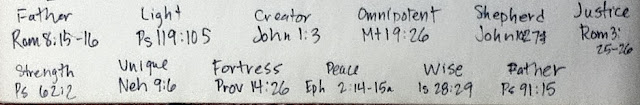 Father Light Creator Omnipotent Shepherd Justice
Rom 8:15-16 Ps 119:105 John 1:3 Mt 19:26 John Rom 3:
25-26
Strength Unique Fortress Peace Wise Father
Ps 62:2 Neh 9:6 Prov 14:26 Eph 2:14-15a Is 28:29 Ps 91:15